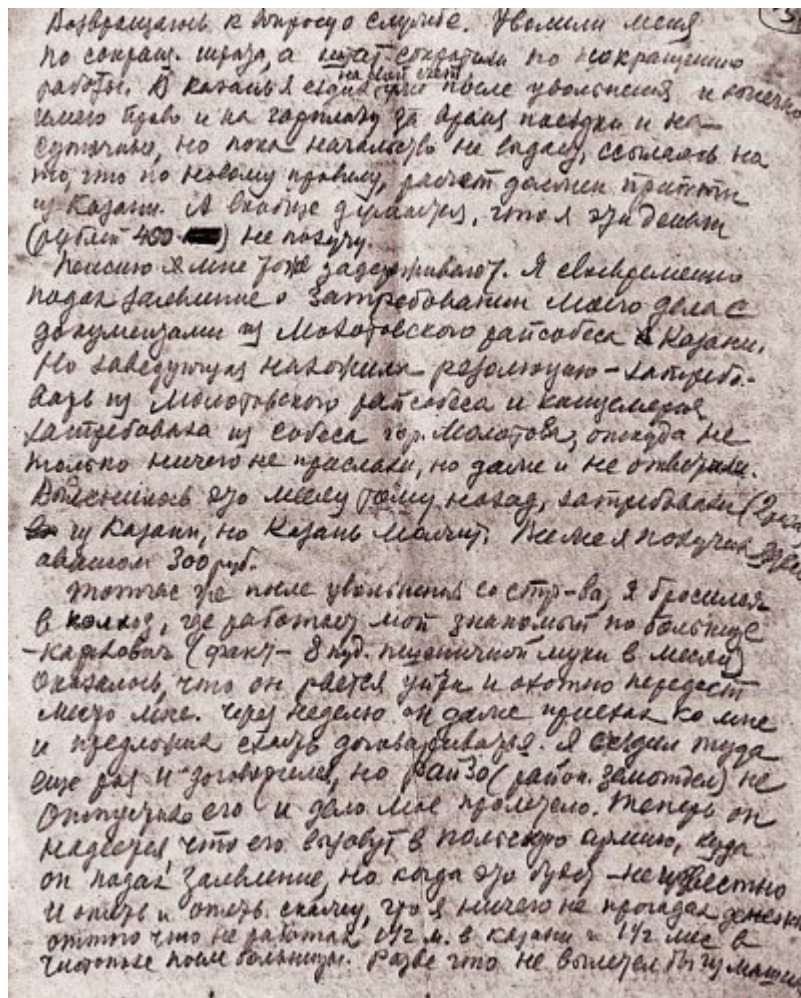 Возвращаюсь к вопросу о службе. Уволили меня
по сокращ. штата, а штат сократили по сокращению
на мой счет
работы. В Казань я ездил уже после увольнения и конечно
имею право и на зарплату за время поездки и на
суточные, но пока начальство не выдает, ссылаясь на
то, что по новому правилу, расчет должен притти
из Казани. А вообще думается, что я эти деньги
(рублей 450) не получу.
Пенсию мне тоже задерживают. Я своевременно
подал заявление о затребовании моего дела с
документами из Молотовского райсобеса Казани.
Но заведующая наложила резолюцию – затребо-
вать из Молотовского райсобеса и канцелярия
затребовала из собеса гор. Молотова, откуда не
только ничего не прислали, но даже и не ответили.
Выяснилось это месяц тому назад, затребовали (2
из Казани, но Казань молчит. Все же я получил
авансом 300 руб.
Тотчас же после увольнения со стр-ва, я бросился
в колхоз, где работает мой знакомый по больнице
– Карпович (факт – 8 пуд. пшеничной муки в месяц)
Оказалось, что он рвется уйти и охотно передаст
место мне. Через неделю он даже приехал ко мне
и предложил ехать договариваться. Я съездил туда
еще раз и договорился, но райзо (район. земотдел) не
отпустило его и дело мое пролетело. Теперь он
надеется, что его вызовут в польскую армию, куда
он подал заявление, но когда это будет – неизвестно
И опять и опять скажу, что я ничего не прогадал
оттого что не работал 1 1/2 м. в Казани и 1 1/2 мес в
Чистополе после больницы. Разве что не вылетел бы из